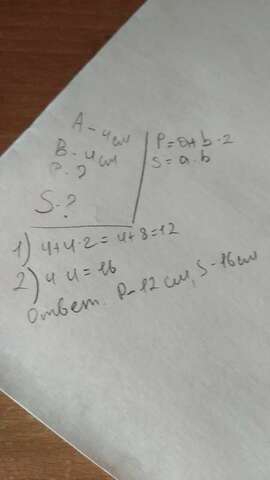 A - 4 см
B - 4 см
P - ?
S - ?
P = a + b · 2
S = a · b
1) 4+4·2 = 4+8=12
2) 4·4=16
Ответ. P - 12 см, S - 16 см